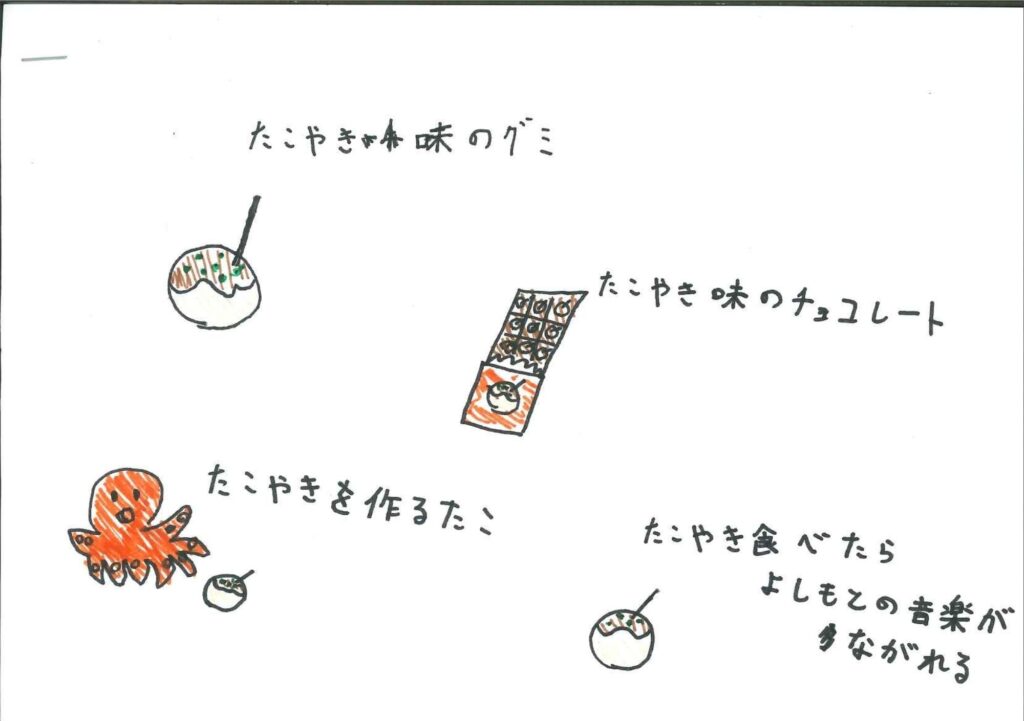 たこやき味のグミ
たこやき味のチョコレート
たこやきを作るたこ
たこやき食べたら
よしもとの音楽が
ながれる